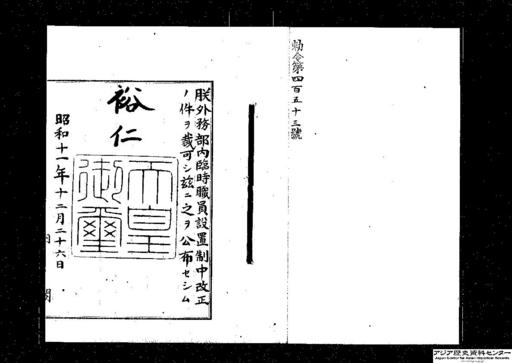 勅令第四百五十三號
朕外務部内臨時職員設置制中改正
ノ件ヲ裁可シ茲ニ之ヲ公布セシム
裕仁
天皇御璽
昭和十一年十二月二十六日
内閣
アジア歴史資料センター
Japan Center for Asian Historical Records